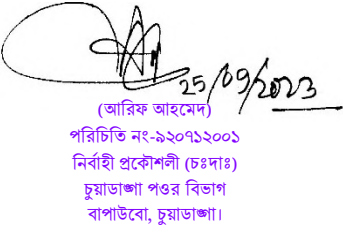 25/09/2023
(আরিফ আহমেদ)
পরিচিতি নং-৯২০৭১২০০১
নির্বাহী প্রকৌশলী (চঃদাঃ)
চুয়াডাঙ্গা পওর বিভাগ
বাপাউবো, চুয়াডাঙ্গা।